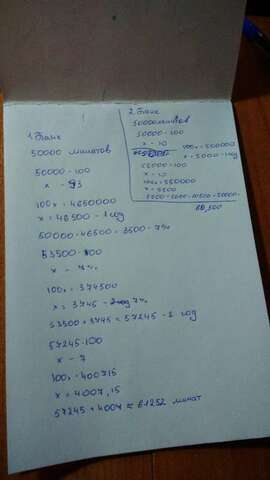 1 банк
50000 минатов
50000 - 100
x - 93
100x = 4650000
x = 46500 - 1 год
50000 - 46500 = 3500 - 7%
53500 - 100
x - 7%
100x = 374500
x = 3745 - 7%
53500 + 3745 = 57245 - 2 год
57245 - 100
x - 7
100x = 400715
x = 4007,15
57245 + 4007 = 61252 минат
2 банк
50000 минатов
50000 - 100
x - 10
100x = 500000
x = 5000 - 1 год
55000 - 100
x - 10
100x = 550000
x = 5500